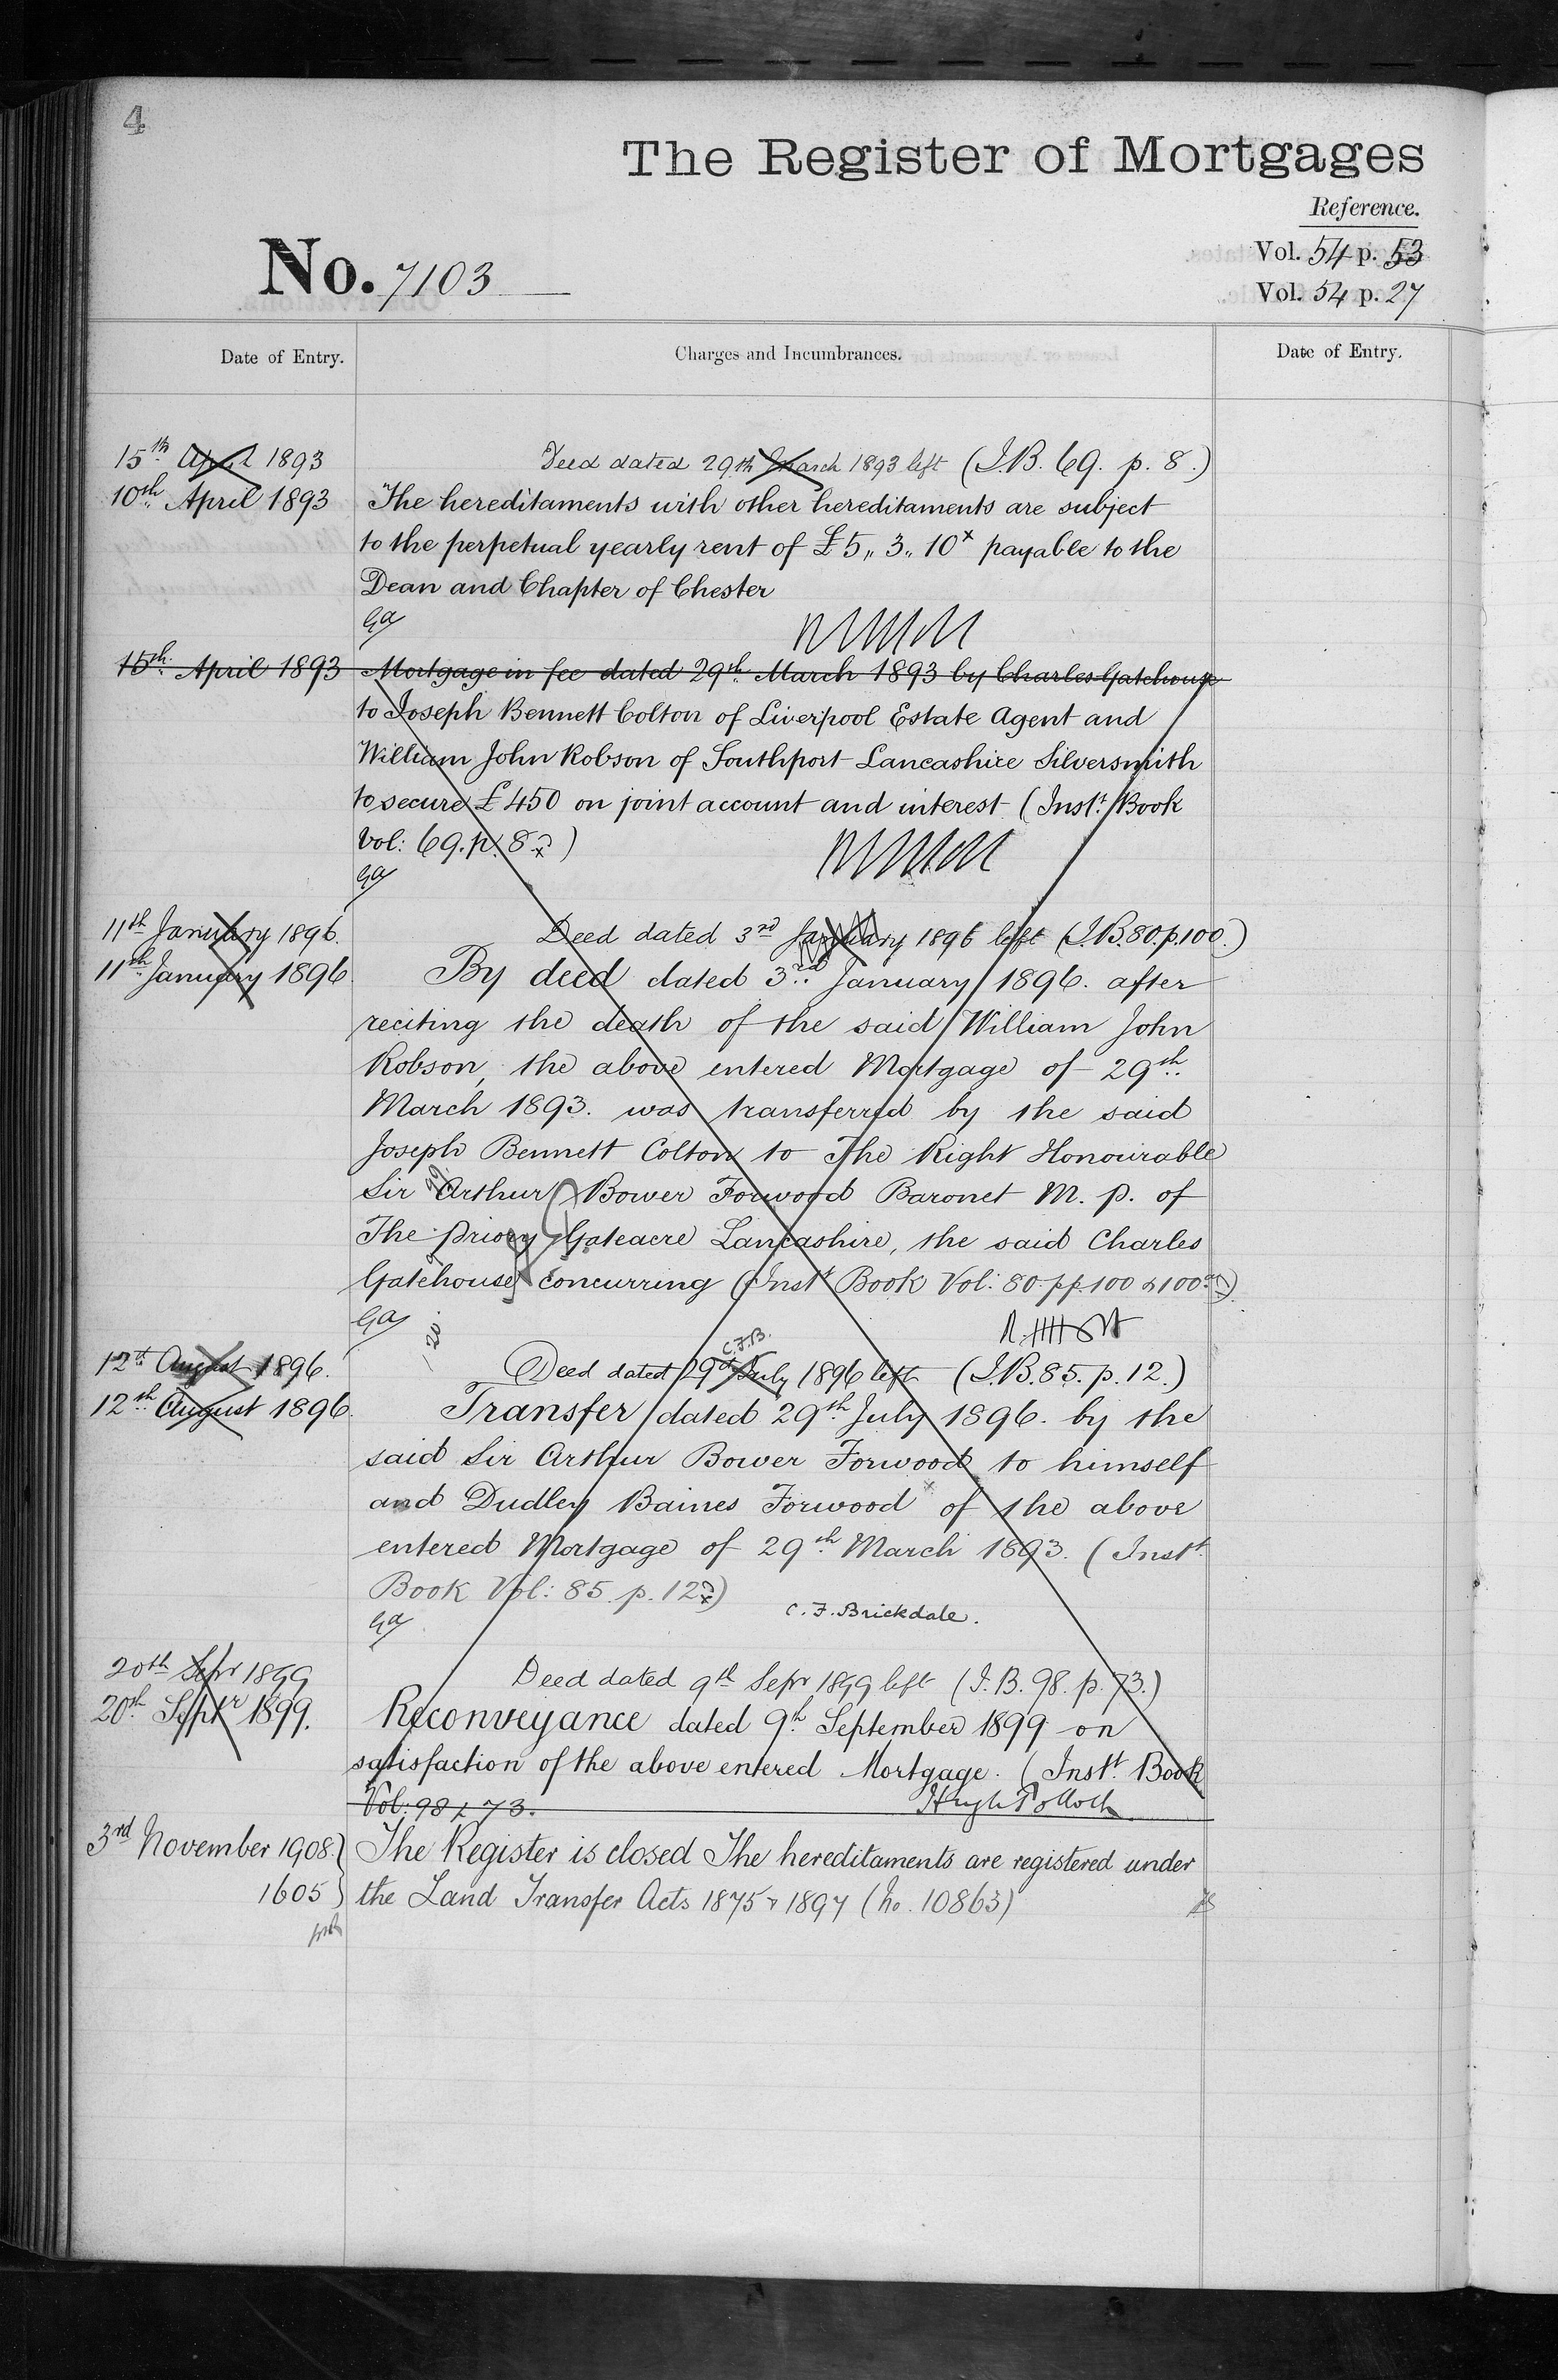 4
The Register of Mortgages
Reference.
Vol. 54 p. 53
No. 7103
Vol. 54 p. 27
Date of Entry.
Charges and Incumbrances.
Date of Entry.
15th April 1893 Deed dated 29th March 1893 left (I.B. 69. p. 8.)
10th April 1893 The hereditaments with other hereditaments are subject
to the perpetual yearly rent of £5,, 3,, 10x payable to the
Dean and Chapter of Chester
Ga
15th April 1893 Mortgage in fee dated 29th March 1893 by Charles Gatehouse
to Joseph Bennett Colton of Liverpool Estate Agent and
William John Robson of Southport Lancashire Silversmith
to secure £450 on joint account and interest (Instt Book
Vol: 69. p. 8 )
Ga
11th January 1896. Deed dated 3rd January 1896 left (I.B. 80. p. 100.)
11th January 1896. By deed dated 3rd January 1896. after
reciting the death of the said William John
Robson, the above entered Mortgage of 29th
March 1893. was transferred by the said
Joseph Bennett Colton to The Right Honourable
Sir Arthur Bower Forwood Baronet M. P. of
The Priory Gateacre Lancashire, the said Charles
Gatehouse concurring (Instt Book Vol: 80. pp. 100 & 100 )
Ga
C.F.B.
12th August 1896. Deed dated 29th July 1896 left (I.B. 85. p. 12.)
12th August 1896. Transfer dated 29th July 1896. by the
said Sir Arthur Bower Forwood to himself
and Dudley Baines Forwood of the above
entered Mortgage of 29th March 1893. (Instt
Book Vol: 85. p. 12 )
Ga C. F. Brickdale.
20th Sepr 1899 Deed dated 9th Sepr 1899 left (I.B. 98. p. 73.)
20th Septr 1899. Reconveyance dated 9th September 1899 on
satisfaction of the above entered Mortgage. (Instt Book
Vol: 98 p. 73. Hugh Pollock
3rd November 1908. The Register is closed The hereditaments are registered under
1605 the Land Transfer Acts 1875 & 1897 (No. 10863)